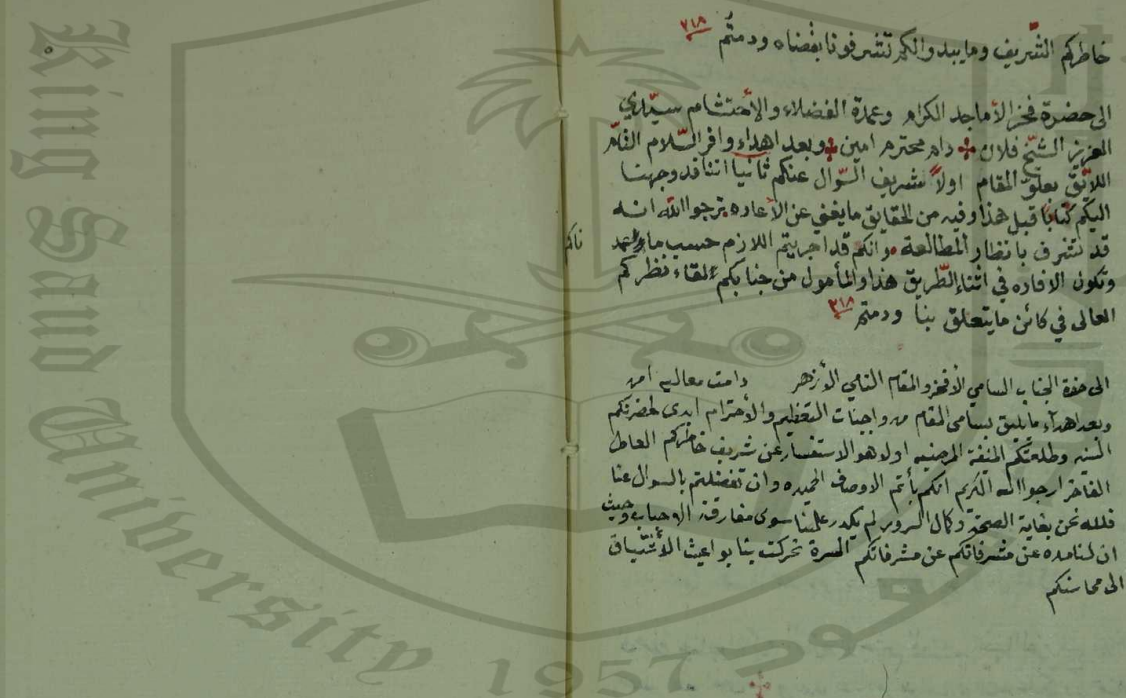 خاطركم الشريف وما يبدو الكم تتشرفونا بقضاه ودمتم ٣١٨
الى حضرة فخر الأماجد الكرام وعمدة الفضلاء والإحتشام سيدي
العزيز الشيخ فلان دام محترم امين وبعد اهداء وافر السلام التام
اللائق بعلو المقام اولاً شريف السؤال عنكم ثانيا اننا قد وجهنا
اليكم كتابا قبل هذا وفيه من الحقايق ما يغني عن الأعاده نرجوا الله انه
قد تشرف بانظار المطالعة وانكم قد اجريتم اللازم حسب ما
وتكون الافاده في اثناء الطريق هذا والمأمول من جنابكم القاء نظركم
العالى في كائن ما يتعلق بنا ودمتم ٣١٨
الى حضرة الجناب السامي الأفخر والمقام النامي الأزهر دامت معاليه امن
وبعد اهداء ما يليق بسامى المقام من واجبات التعظيم والأحترام ابدى لحضرتكم
السنيه وطلعتكم المنيفة المرضيه اولا هو الاستفسار عن شريف خاطركم العاطر
الفاخر ارجوا الله الكريم انكم بأتم الاوصاف الحميده وان تفضلتم بالسوال عنا
فلله نحن بغاية الصحة وكمال السرور لم يكدر علينا سوى مفارقة الاحباب وحيث
ان لنا مده عن مشرفاتكم عن مشرفاتكم المسرة تحركت بنا بواعيث الأشتياق
الى محاسنكم
King Saud University
1957